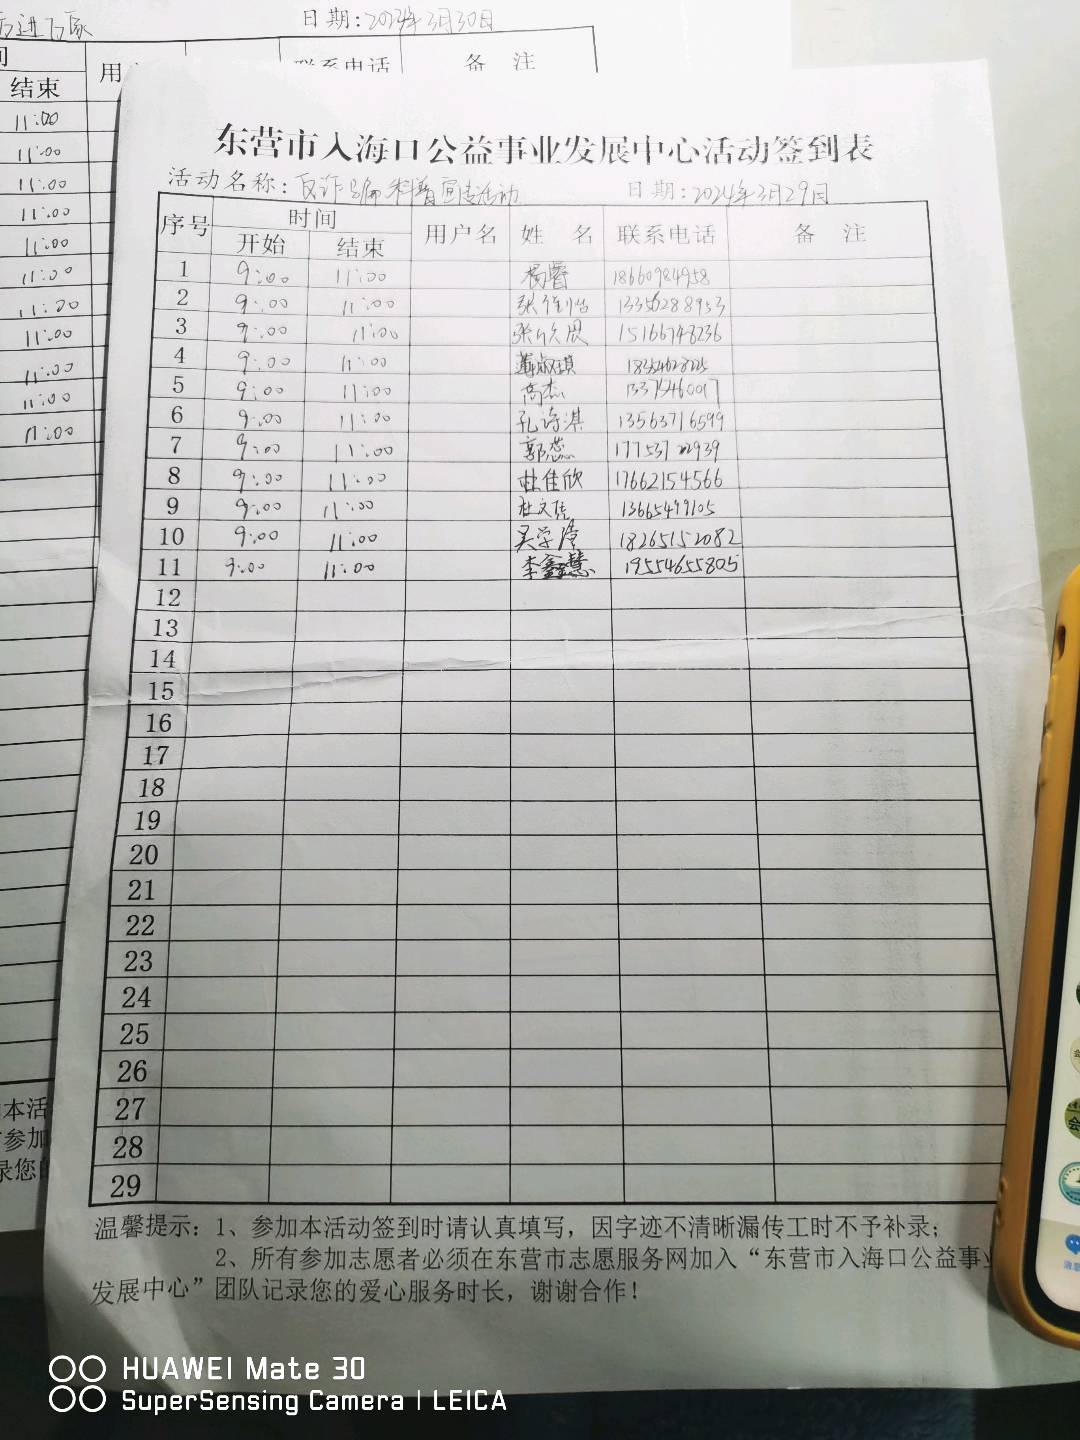 日期：2024年3月30日
结束
用户
联系电话
备 注
11:00
11:00
11:00
11:00
11:00
11:00
11:00
11:00
11:00
11:00
11:00
东营市入海口公益事业发展中心活动签到表
活动名称：反诈骗科普宣传活动 日期：2024年3月29日
序号 时间 用户名 姓 名 联系电话 备 注
开始 结束
1 9:00 11:00 杨睿 18660984958
2 9:00 11:00 13356288953
3 9:00 11:00 张欣恩 15166748236
4 9:00 11:00
5 9:00 11:00 高杰 133715460017
6 9:00 11:00 孔诗淇 13563716599
7 9:00 11:00 郭蕊
8 9:00 11:00 杜佳欣 17662154566
9 9:00 11:00 杜文虎 13665499105
10 9:00 11:00 吴学澄 18265152082
11 9:00 11:00 李鑫慧 19554655805
12
13
14
15
16
17
18
19
20
21
22
23
24
25
26
27
28
29
温馨提示：1、参加本活动签到时请认真填写，因字迹不清晰漏传工时不予补录；
2、所有参加志愿者必须在东营市志愿服务网加入“东营市入海口公益事业
发展中心”团队记录您的爱心服务时长，谢谢合作！
本活
参加
录您的
HUAWEI Mate 30
SuperSensing Camera | LEICA